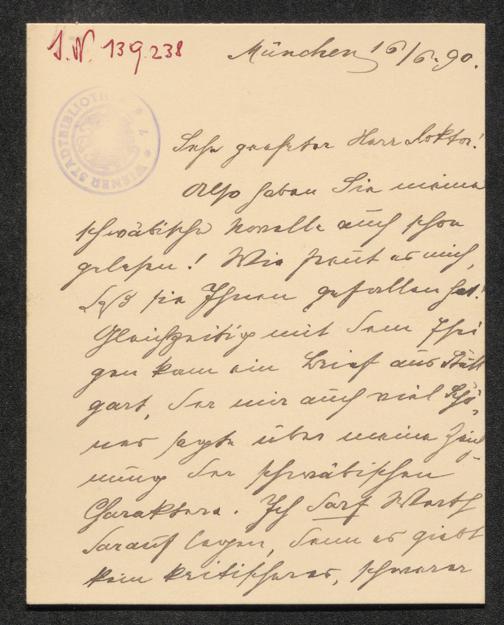 J.N. 139.238
München 16/6. 90.
WIENER STADTBIBLIOTHEK
Sehr geehrter Herr Doktor!
Also haben Sie meine
schwäbische Novelle auch schon
gelesen! Wie freut es mich,
daß sie Ihnen gefallen hat!
Gleichzeitig mit dem Ihri
gen kam ein Brief aus Stutt
gart, der mir auch viel Schö
nes sagte über meine Zeich
nung der schwäbischen
Charaktere. Ich darf Werth
darauf legen, denn es giebt
kein kritischeres, schwerer